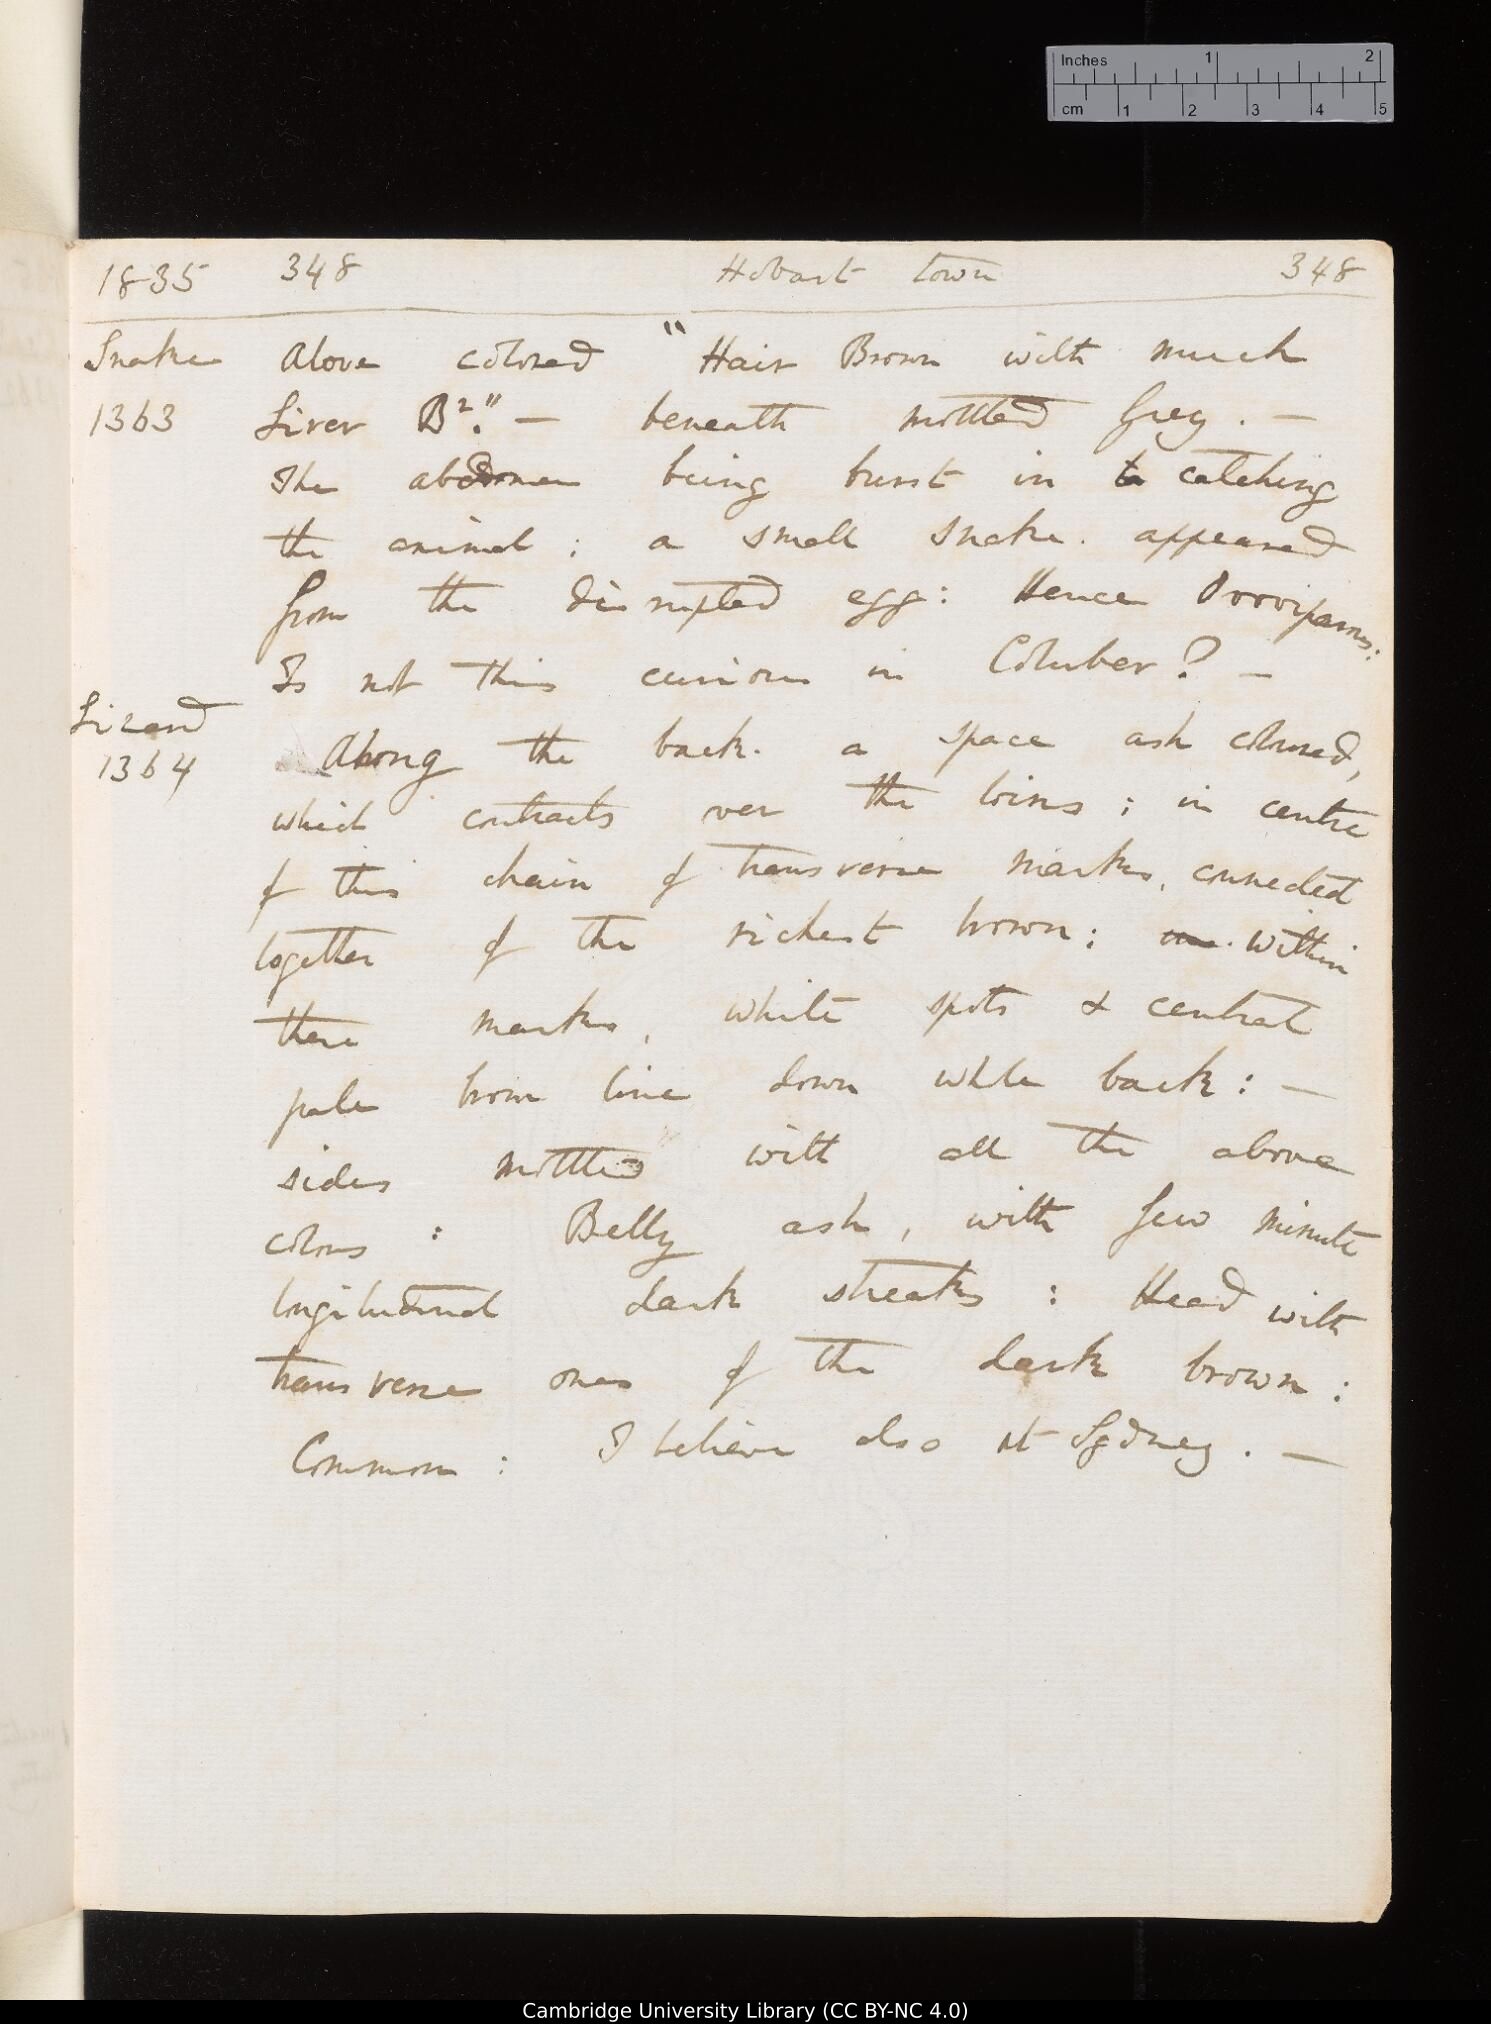 Inches 1 2
cm 1 2 3 4 5
1835 348 Hobart town 348
Snake Above colored "Hair Brown with much
1363 Liver Bʳ." — beneath mottled Grey. —
The abdomen being burst in catching
the animal; a small snake. appeared
from the disrupted egg: Hence Ovoviparous:
Is not this curious in Coluber? —
Lizard
1364 Along the back. a space ash coloured,
which contracts over the loins; in centre
of this chain of transverse marks, connected
together of the richest brown; within
these marks, white spots & central
pale brown line down whole back: —
sides mottled with all the above
colors : Belly ash, with few minute
longitudinal dark streaks : Head with
transverse ones of the dark brown :
Common : I believe also at Sydney. —
Cambridge University Library (CC BY-NC 4.0)